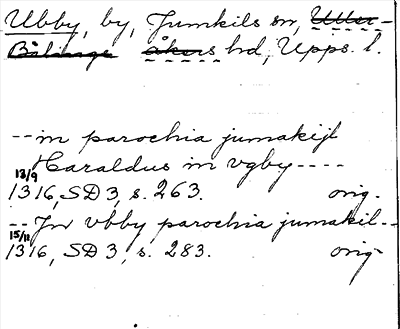 Ubby, by, Jumkils sn, Uller-
Bälinge åkers hd, Upps. l.
-- in parochia jumakijl
Haraldus in vgby ----
13/9
1316, SD 3, s. 263. orig.
-- Jn vbby parochia jumakil --
15/11
1316, SD 3, s. 283. orig.